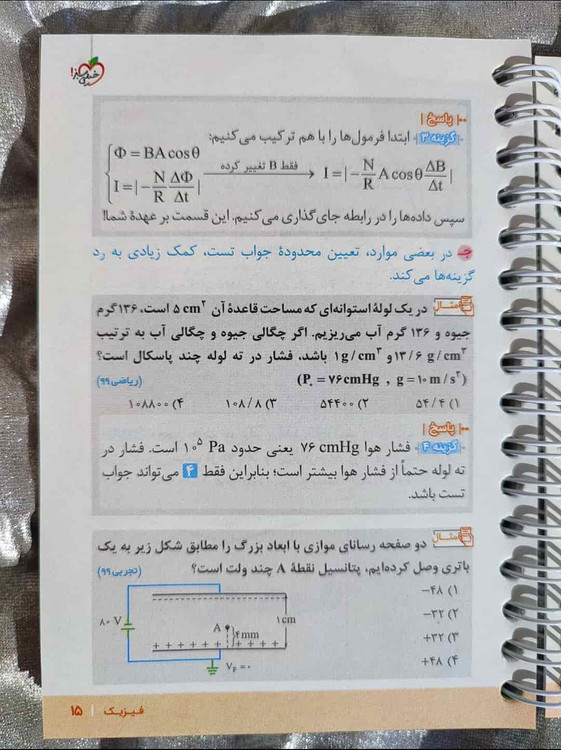 خیلی سبز!
پاسخ
گزینه ۳ ابتدا فرمول‌ها را با هم ترکیب می‌کنیم:
Φ = BA cos θ
I = |− N/R ΔΦ/Δt| فقط B تغییر کرده → I = |− N/R A cos θ ΔB/Δt|
سپس داده‌ها را در رابطه جای‌گذاری می‌کنیم. این قسمت بر عهدهٔ شما!
در بعضی موارد، تعیین محدودهٔ جواب تست، کمک زیادی به رد
گزینه‌ها می‌کند.
مثال در یک لولهٔ استوانه‌ای که مساحت قاعدهٔ آن ۵ cm² است، ۱۳۶ گرم
جیوه و ۱۳۶ گرم آب می‌ریزیم. اگر چگالی جیوه و چگالی آب به ترتیب
۱۳/۶ g/cm³ و ۱ g/cm³ باشد، فشار در ته لوله چند پاسکال است؟
(P₀ = ۷۶ cmHg , g = ۱۰ m/s²) (ریاضی ۹۹)
۱) ۵۴/۴ ۲) ۵۴۴۰۰ ۳) ۱۰۸/۸ ۴) ۱۰۸۸۰۰
پاسخ
گزینه ۴ فشار هوا ۷۶ cmHg یعنی حدود ۱۰⁵ Pa است. فشار در
ته لوله حتماً از فشار هوا بیشتر است؛ بنابراین فقط ۴ می‌تواند جواب
تست باشد.
مثال دو صفحه رسانای موازی با ابعاد بزرگ را مطابق شکل زیر به یک
باتری وصل کرده‌ایم، پتانسیل نقطهٔ A چند ولت است؟ (تجربی ۹۹)
۱) −۴۸
۲) −۳۲
۳) +۳۲
۴) +۴۸
۸۰ V
A
۴mm
۱cm
V_F = ۰
فیزیک | ۱۵